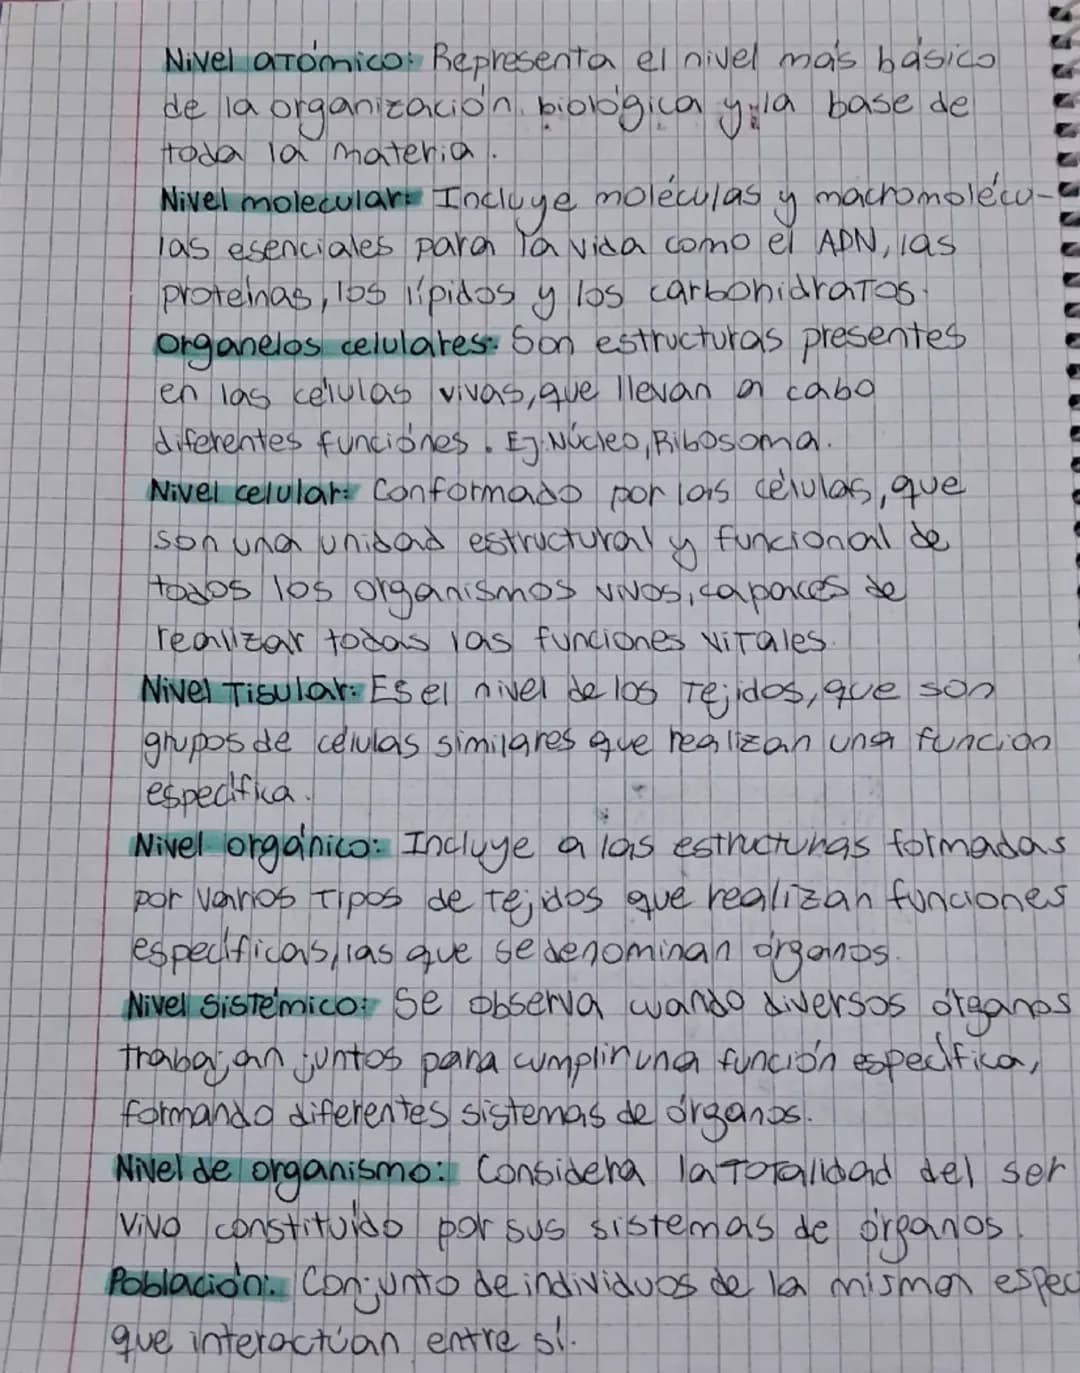 Nivel atómico: Representa el nivel más básico
de la organización biológica y la base de
toda la materia.
Nivel molecular: Incluye moléculas y macromolécu-
las esenciales para la vida como el ADN, las
proteínas, los lípidos y los carbohidratos.
organelos celulares: Son estructuras presentes
en las células vivas, que llevan a cabo
diferentes funciónes. Ej: Núcleo, Ribosoma.
Nivel celular: Conformado por las células, que
son una unidad estructural y funcional de
todos los organismos vivos, capaces de
realizar todas las funciones vitales.
Nivel Tisular: Es el nivel de los Tejidos, que son
grupos de células similares que realizan una función
específica.
Nivel orgánico: Incluye a las estructuras formadas
por varios tipos de tejidos que realizan funciones
específicas, las que se denominan órganos.
Nivel Sistémico: Se observa cuando diversos órganos
trabajan juntos para cumplir una función específica,
formando diferentes sistemas de órganos.
Nivel de organismo: Considera la totalidad del ser
vivo constituído por sus sistemas de órganos.
Población: Conjunto de individuos de la misma espec
que interactúan entre sí.